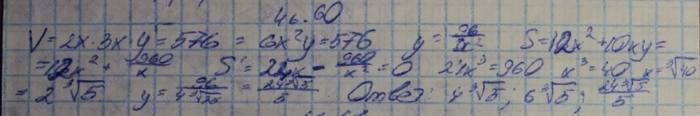 46.60
V = 2x·3x·y = 576 = 6x²y = 576 y = 96/x² S = 12x² + 10xy =
= 12x² + 960/x S' = 24x - 960/x² = 0 24x³ = 960 x³ = 40 x = ∛40
= 2∛5 y = 96/4∛25 = 24∛5/5 Ответ: 4∛5; 6∛5; 24∛5/5